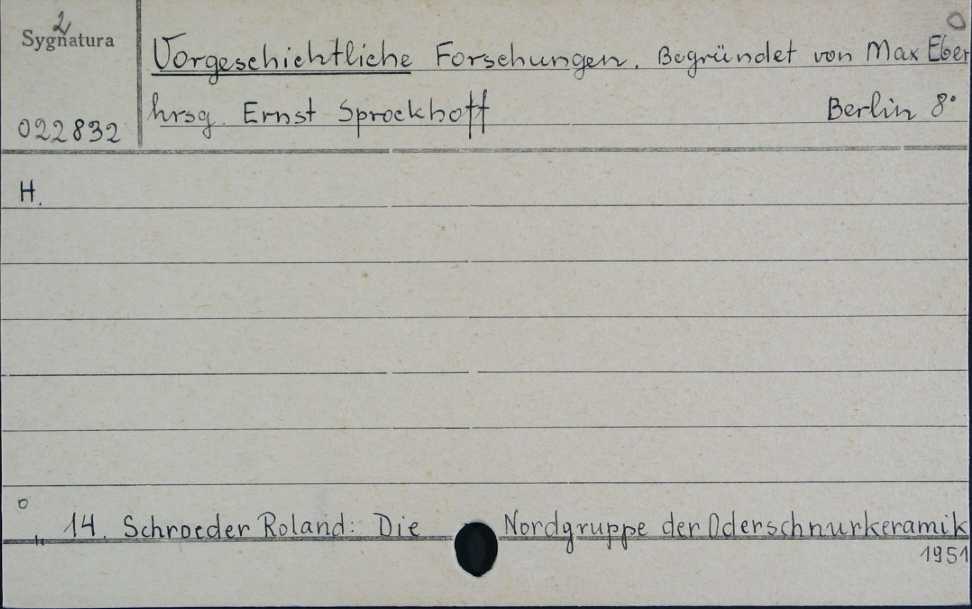 2
Sygnatura
022832
Vorgeschichtliche Forschungen. Begründet von Max Eber
hrsg. Ernst Sprockhoff Berlin 8°
H.
" 14. Schroeder Roland: Die Nordgruppe der Oderschnurkeramik
1951